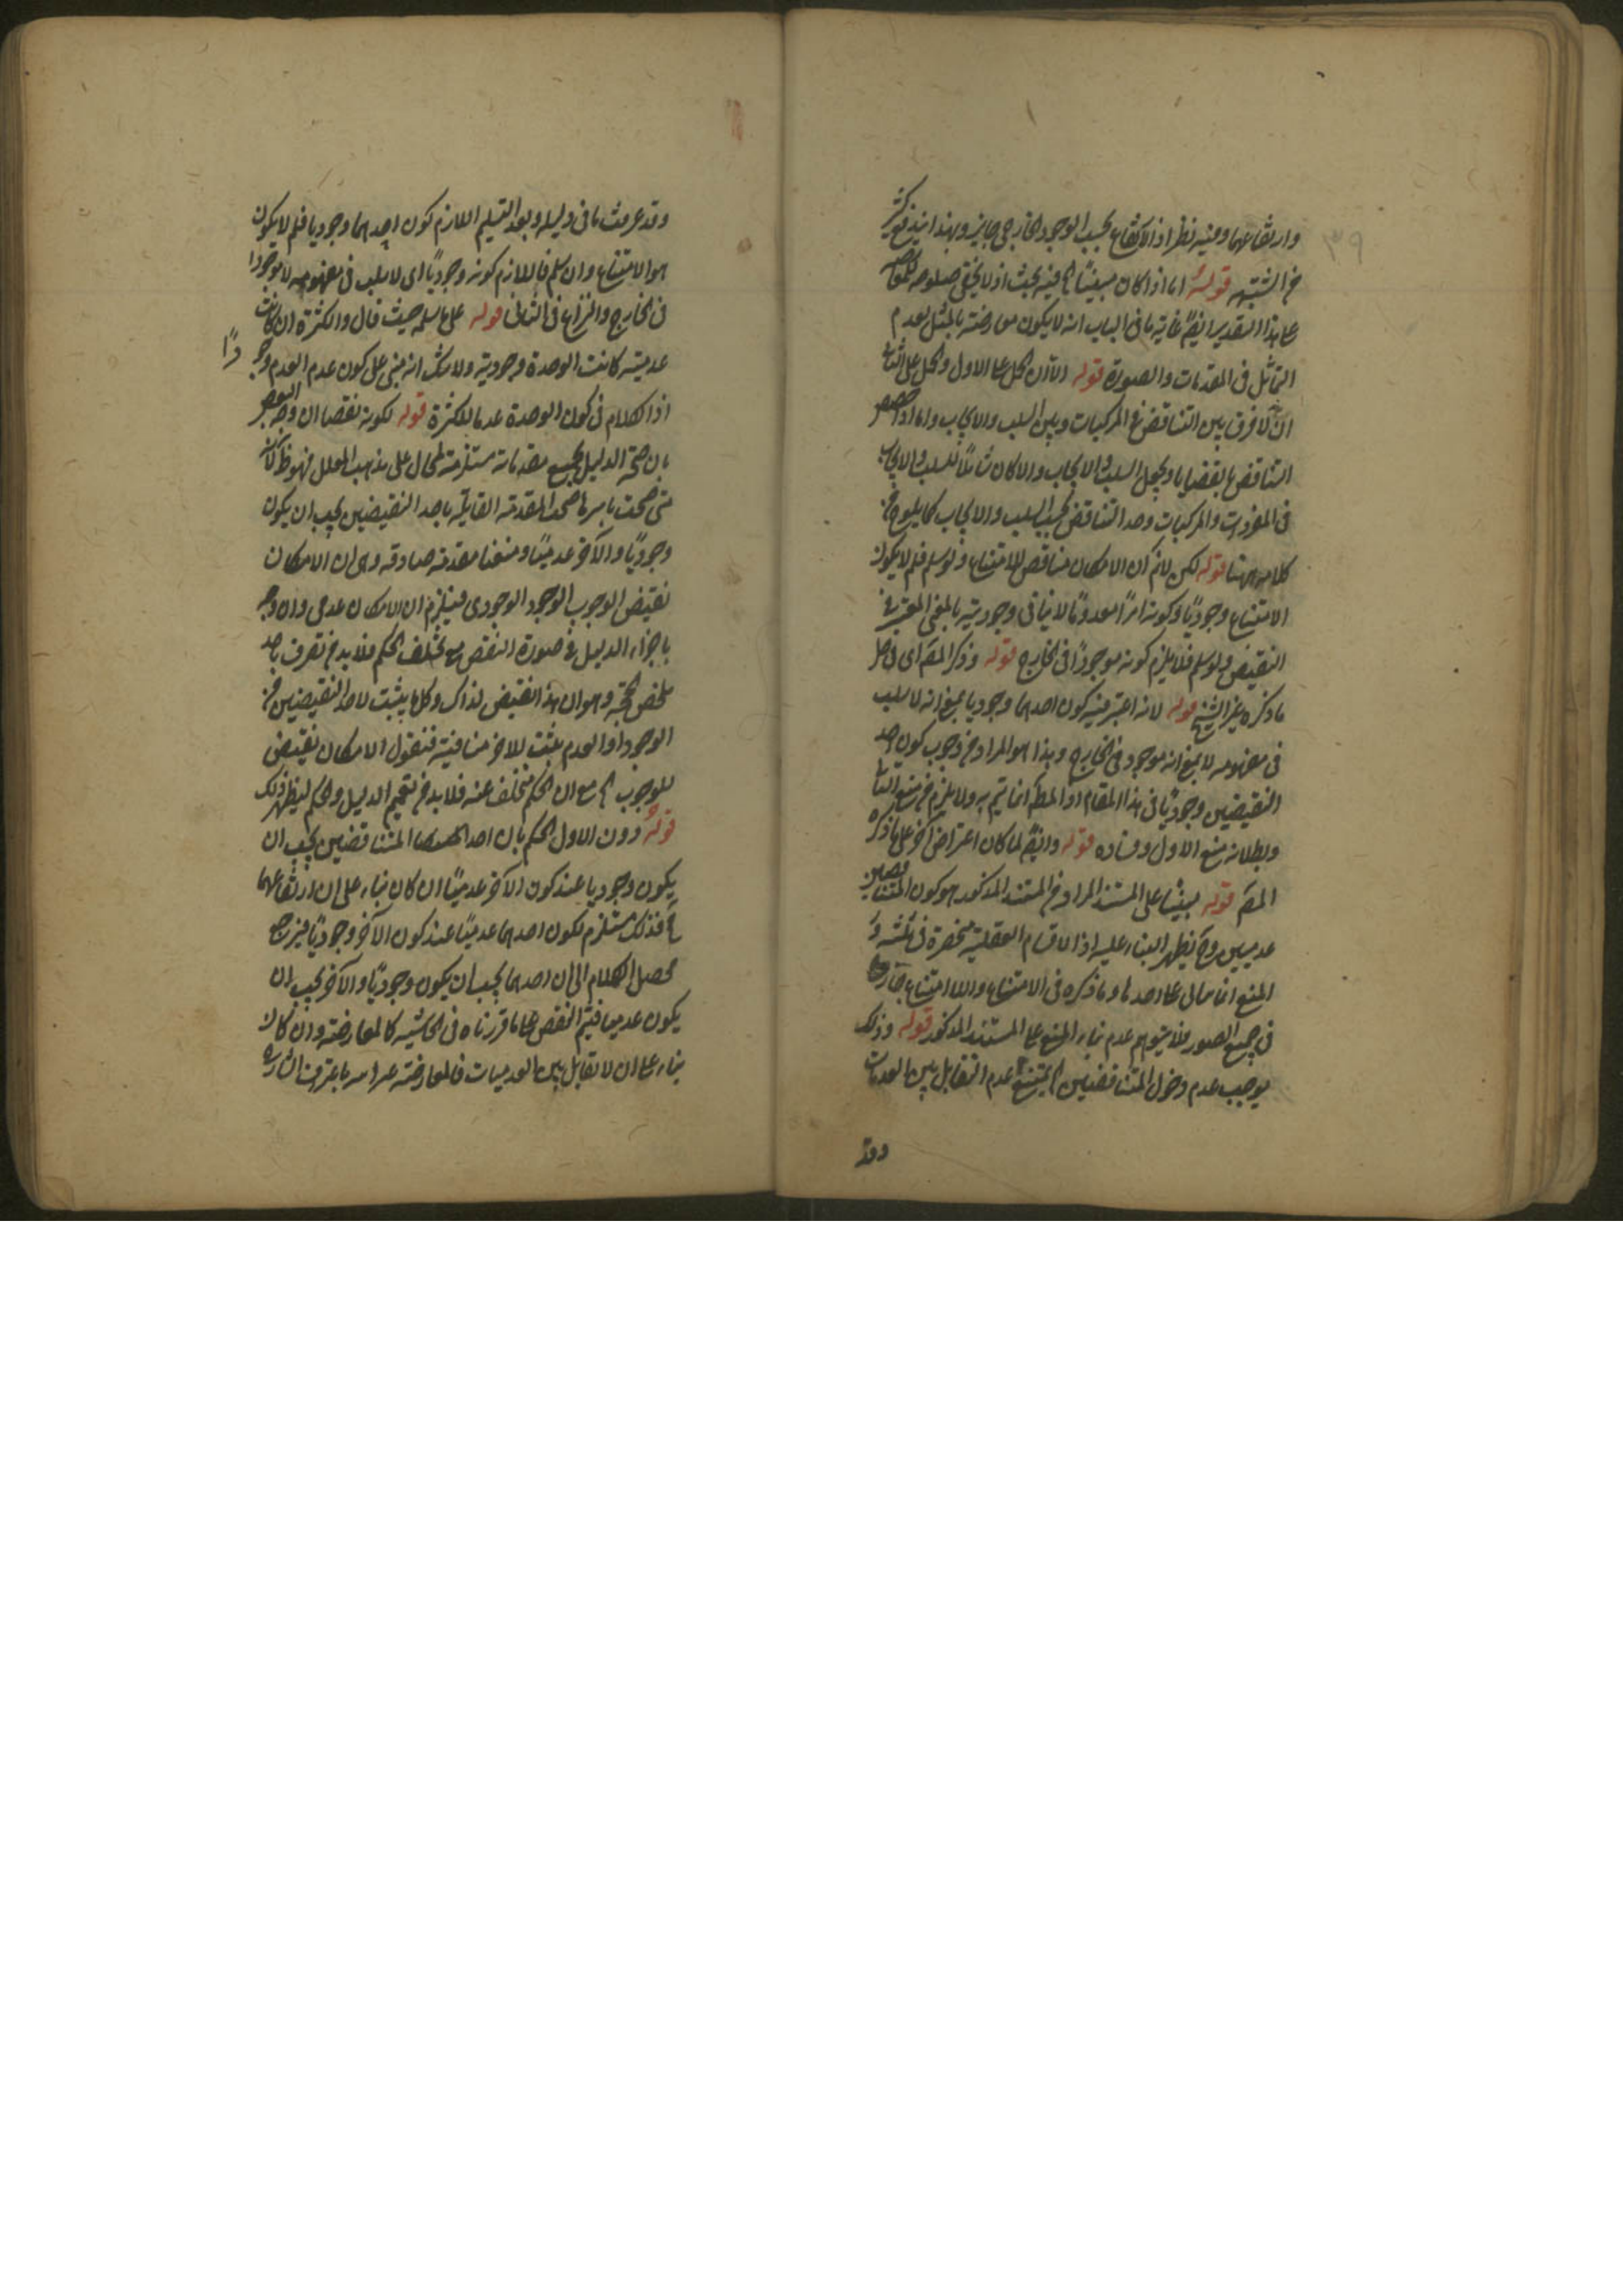 وارتفاعهما وفيه نظر اذ الارتفاع بحسب الوجود الخارجي جايز وبهذا يندفع كثير
من الشبهه قوله اما اذا كان مبنيا الخ فيه بحث اذ لا يخفى صلوحه للنقض
على هذا التقدير ايضا غاية ما فى الباب انه لا يكون معارضة بالمثل لعدم
التماثل فى المقدمات والصورة قوله الا ان يحمل على الاول والحمل على الثانى
لا فرق بين التناقض فى المركبات وبين السلب والايجاب واما اذا خصص
التناقض بالقضايا ويجعل السلب والايجاب والا كان شاملا للسلب والايجاب
فى المفردات والمركبات وحد التناقض بحسب السلب والايجاب كما يلوح من
كلامه ههنا قوله لكن لا نم ان الامكان مناقض للامتناع ولو سلم فلم لا يكون
الامتناع وجوديا وكونه امرا معدوما لا ينافى وجوديته بالمعنى المعتبر فى
النقيض ولو سلم فلا يلزم كونه موجودا فى الخارج قوله وذكر المص اى فى حل
ما ذكره غير الشيخ قوله لانه اعتبر فيه كون احدهما وجوديا بمعنى انه لا سلب
فى مفهومه لا بمعنى انه موجود فى الخارج وهذا هو المراد من وجوب كون احد
النقيضين وجوديا فى هذا المقام اذ المط انما يتم به ولا يلزم من منع الثانى
وبطلانه منع الاول وفساده قوله وايضا لما كان اعتراض آخر على ما ذكره
المص قوله مبنيا على المستند المراد من المستند المذكور هو كون المتناقضين
عدميين وح يظهر البناء عليه اذ الاقسام العقلية منحصرة فى ثلثة و
المنع انما على احدها وما ذكره فى الامتناع واللا امتناع جار
فى جميع الصور فلا يتوهم عدم بناء المنع على المستند المذكور قوله وذلك
يوجب عدم دخول المتناقضين الخ يمتنع عدم التقابل بين العدميات
وقد
وقد عرفت ما فى دليله وبعد التسليم اللازم كون احدهما وجوديا فلم لا يكون
هو الامتناع وان سلم فاللازم كونه وجوديا اى لا سلب فى مفهومه لا موجودا
فى الخارج والنزاع فى الثانى قوله على ما سلمه حيث قال والكثرة ان كانت
عدمية كانت الوحدة وجودية ولا شك انه مبنى على كون عدم العدم وجو
دا
اذ الكلام فى كون الوحدة عدما للكثرة قوله لكونه نقضا ان وجه النقض
بان صحة الدليل بجميع مقدماته مستلزمة لمحال على مذهب المعلل فهو ظ لانه
متى صحت باسرها صحت المقدمة القايلة باحد النقيضين يجب ان يكون
وجوديا والآخر عدميا ومعنا مقدمة صادقة وهى ان الامكان
نقيض الوجوب الوجود الوجودى فيلزم ان الامكان عدمى وان وجه
باجراء الدليل فى صورة النقض مع تخلف الحكم فلا بد من تصرف باخذ
ملخص الحجة وهو ان هذا نقيض لذاك وكل ما يثبت لاحد النقيضين من
الوجود او العدم يثبت للاخر منافيه فنقول الامكان نقيض
للوجوب الخ مع ان الحكم متخلف عنه فلا بد من تعميم الدليل والحكم ليظهر ذلك
قوله دون الاول الحكم بان احد المتناقضين يجب ان
يكون وجوديا عند كون الآخر عدميا ان كان بناء على ان ارتفاعهما
فذلك مستلزم لكون احدهما عدميا عند كون الآخر وجوديا فيرجع
محصل الكلام الى ان احدهما يجب ان يكون وجوديا والآخر يجب ان
يكون عدميا فيتم النقض على ما قررناه فى الحاشيه كالمعارضة وان كان
بناء على ان لا تقابل بين العدميات فالمعارضة